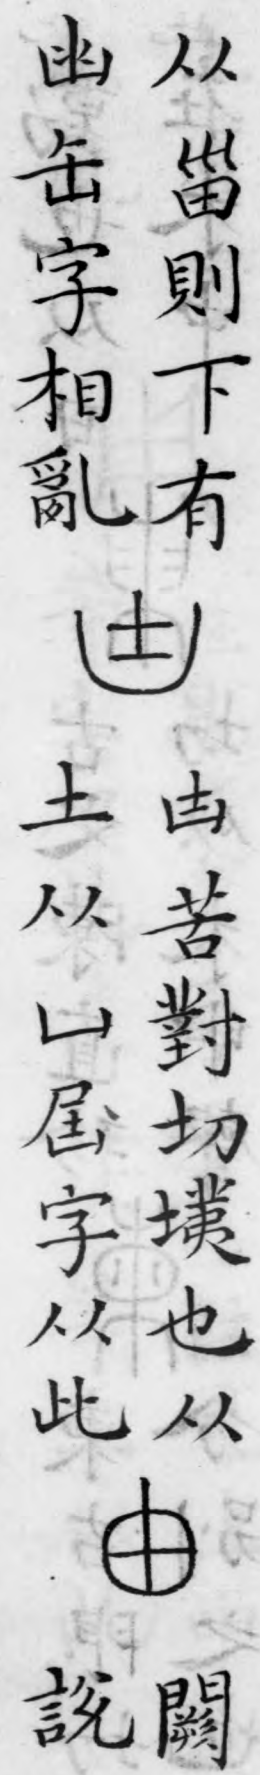 从甾則下有
凼缶字相亂
凷
凷苦對切墣也从
土从凵屆字从此
由
闕
説